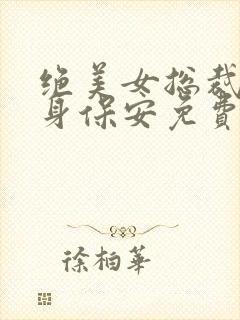 绝美女总裁
身保安免費
徐柏華